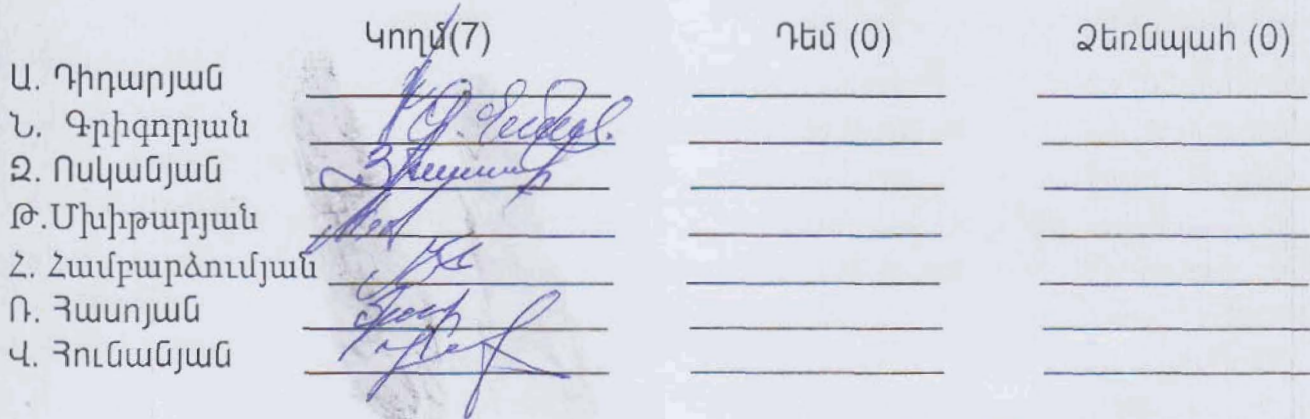 Կողմ(7) Դեմ (0) Ձեռնպահ (0)
Ա. Դիդարյան
Ն. Գրիգորյան
Զ. Ոսկանյան
Թ.Մխիթարյան
Հ. Համբարձումյան
Ռ. Հասոյան
Վ. Հունանյան